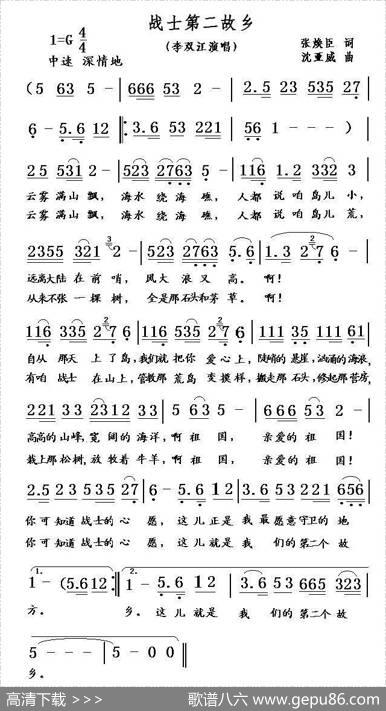 战士第二故乡
1=G 4/4
（李双江演唱）
张焕臣 词
中速 深情地
沈亚威 曲
（5 63 5 - | 666 53 2 - | 2.5 23 535 27 |
6 - 5.6 12 |: 3.6 53 221 | 56 1 - - - ） |
25 531 2 - | 523 2763 5 - | 116 1.2 332 3 |
云雾满山飘， 海水绕海礁， 人都说咱岛儿小，
云雾满山飘， 海水绕海礁， 人都说咱岛儿荒，
2355 321 3 2 - | 523 2763 5.6 | 1.3 2 2 7 6 - |
远离大陆在前哨， 风大浪又高。 啊！
从来不张一棵树， 全是那石头和茅草。 啊！
116 335 2 2 7 6 | 116 335 2 2 7 6 | 335 111 35 111 61 |
自从 那天 上了岛，我们就把你 爱心上，陡峭的悬崖，汹涌的海浪，
有咱 战士 在山上，管教那荒岛 变摸样，搬走那石头，修起那营房，
221 33 2312 33 | 5 635 - | 6 66 53 2 - |
高高的山峰，宽阔的海洋，啊祖 国， 亲爱的祖 国！
栽上那松树，放牧着牛羊，啊祖 国， 亲爱的祖 国！
2.5 23 535 27 | 6 - 5.6 12 | 3.6 53 221 656 |
你可知道战士的心 愿， 这儿正是我最愿意守卫的地
你可知道战士的心 愿， 这儿就是我 们的第二个故
1. 1 - （5.612 :| 2. 1 - 5.6 12 | 3.6 53 665 323 |
方。 乡。 这儿就是 我 们的第二个故
5 - - - | 5 - 0 0 ||
乡。
高清下载 >>>
歌谱八六 www.gepu86.com